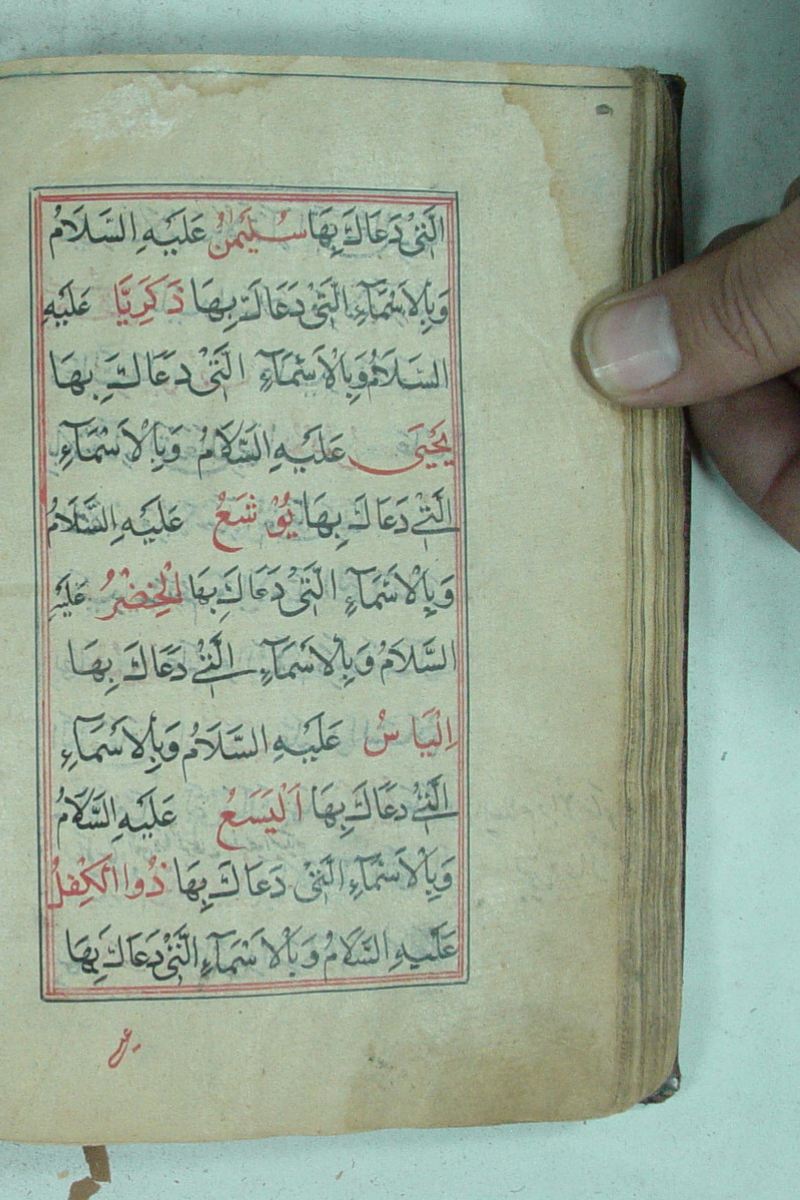 الَّتِيْ دَعَاكَ بِهَا سُلَيْمٰنُ عَلَيْهِ السَّلَامُ
وَبِالْاَسْمَآءِ الَّتِيْ دَعَاكَ بِهَا ذَكَرِيَّا عَلَيْهِ
السَّلَامُ وَبِالْاَسْمَآءِ الَّتِيْ دَعَاكَ بِهَا
يَحْيَى عَلَيْهِ السَّلَامُ وَبِالْاَسْمَآءِ
الَّتِيْ دَعَاكَ بِهَا يُوْشَعُ عَلَيْهِ السَّلَامُ
وَبِالْاَسْمَآءِ الَّتِيْ دَعَاكَ بِهَا الْخِضْرُ عَلَيْهِ
السَّلَامُ وَبِالْاَسْمَآءِ الَّتِيْ دَعَاكَ بِهَا
اِلْيَاسُ عَلَيْهِ السَّلَامُ وَبِالْاَسْمَآءِ
الَّتِيْ دَعَاكَ بِهَا اَلْيَسَعُ عَلَيْهِ السَّلَامُ
وَبِالْاَسْمَآءِ الَّتِيْ دَعَاكَ بِهَا ذُوا الْكِفْلُ
عَلَيْهِ السَّلَامُ وَبِالْاَسْمَآءِ الَّتِيْ دَعَاكَ بِهَا